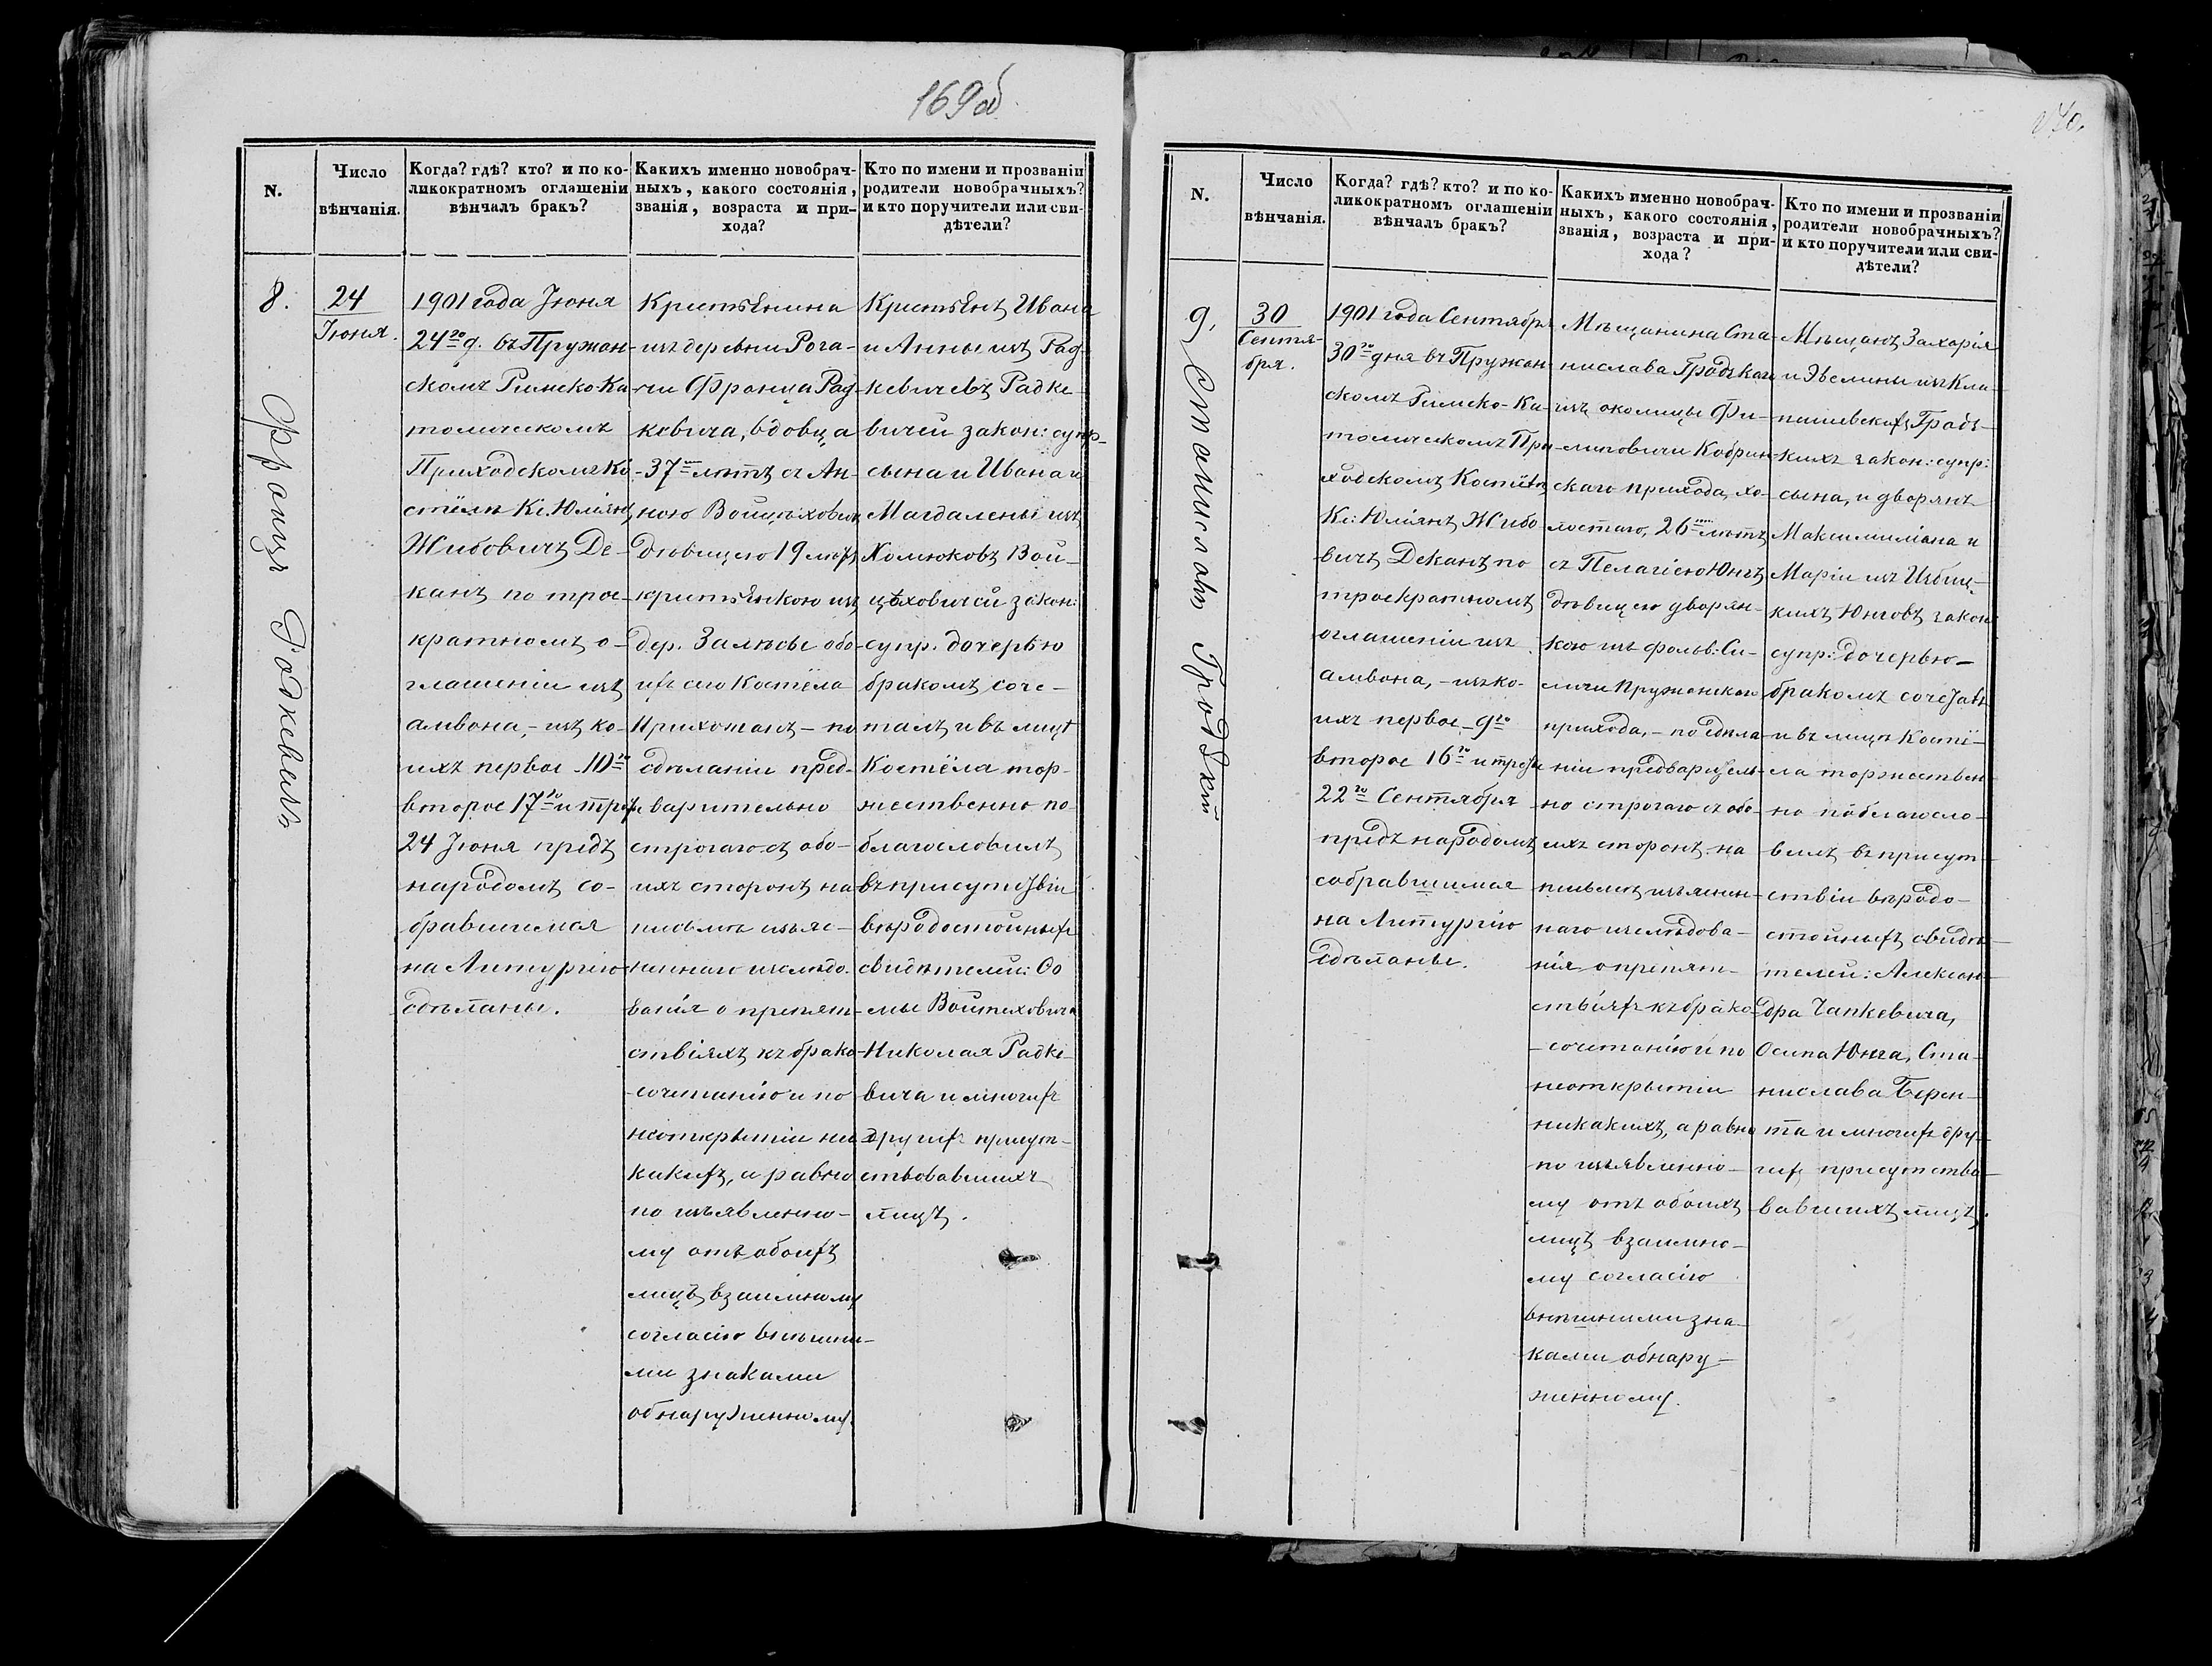 169об
N.
Число
вѣнчанія.
Когда? гдѣ? кто? и по ко-
ликократномъ оглашеніи
вѣнчалъ бракъ?
Какихъ именно новобрач-
ныхъ, какого состоянія,
званія, возраста и при-
хода?
Кто по имени и прозваніи
родители новобрачныхъ?
и кто поручители или сви-
дѣтели?
8.
24
Іюня.
1901 года Іюня
24го д. въ Пружан-
скомъ Римско-Ка-
толическомъ
Приходскомъ Ко
стёлѣ Кс. Юліянъ
Жибовичъ Де-
канъ по трое-
кратномъ о-
глашеніи изъ
амвона, - изъ ко-
ихъ первое 10го
второе 17го и третье
24 Іюня предъ
народомъ со-
бравшимся
на Литургію
сдѣланы.
Крестьянина
изъ деревни Рога-
чи Франца Рад
кевича, вдовца
-37 лѣтъ съ Ан-
ною Войцеховичъ
дѣвицею 19 лѣтъ
крестьянкою изъ
дер. Залѣсье обо-
ихъ сего Костёла
Прихожанъ - по
сдѣланіи пред-
варительно
строгаго съ обо-
ихъ сторонъ на
письмѣ изъяс-
неннаго изслѣдо-
ванія о препят-
ствіяхъ къ брако
-сочетанію и по
неоткрытіи ни
какихъ, а равно
по изъявленно-
му отъ обоихъ
лицъ взаимному
согласію внѣшни-
ми знаками
обнаруженному.
Крестьянъ Ивана
и Анны изъ Рад-
кевичевъ Радке-
вичей закон: супр-
сына и Ивана и
Магдалены изъ
Хомюковъ Вой-
цѣховичей закон:
супр. дочерью
бракомъ соче-
талъ и въ лицѣ
Костёла тор-
жественно по
благословилъ
въ присутствіи
вѣродостойныхъ
свидѣтелей: Ѳо
мы Войтеховича
Николая Радке-
вича и многихъ
другихъ присут-
ствовавшихъ
лицъ.
Францъ Радкевичъ
170.
N.
Число
вѣнчанія.
Когда? гдѣ? кто? и по ко-
ликократномъ оглашеніи
вѣнчалъ бракъ?
Какихъ именно новобрач-
ныхъ, какого состоянія,
званія, возраста и при-
хода?
Кто по имени и прозваніи
родители новобрачныхъ?
и кто поручители или сви-
дѣтели?
9,
30
Сентя-
бря.
1901 года Сентября
30го дня въ Пружан
скомъ Римско-Ка-
толическомъ При
ходскомъ Костёлѣ
Кс: Юліянъ Жибо
вичъ Деканъ по
троекратномъ
оглашеніи изъ
амвона, - изъ ко-
ихъ первое - 9го
второе 16го и третье
22го Сентября
предъ народомъ
собравшимся
на Литургію
сдѣланы.
Мѣщанина Ста-
нислава Гродзкаго
изъ околицы Фи-
липовичи Кобрин
скаго прихода, хо-
лостаго, 26 лѣтъ
съ Пелагіею Юнгъ
дѣвицею дворян-
кою изъ фольв: Си-
личи Пружанскаго
прихода, - по сдѣла
ніи предваритель-
но строгаго съ обо-
ихъ сторонъ на
письмѣ изъяснен-
наго изслѣдова-
нія о препят-
ствіяхъ къ брако
-сочетанію и по
неоткрытіи
никакихъ, а равно
по изъявленно-
му отъ обоихъ
лицъ взаимно-
му согласію
внѣшними зна-
ками обнару-
женному.
Мѣщанъ Захарія
и Эвелины изъ Кла-
пашевскихъ Гродз-
кихъ закон: супр:
сына, и дворянъ
Максимиліана и
Маріи изъ Избиц-
кихъ Юнговъ закон
супр: дочерью-
бракомъ сочеталъ
и въ лицѣ Костё-
ла торжествен
но поблагосло-
вилъ въ присут-
ствіи вѣродо-
стойныхъ свидѣ-
телей: Алексан-
дра Чапкевича,
Осипа Юнга, Ста-
нислава Берен-
та и многихъ дру-
гихъ присутство-
вавшихъ лицъ.
Станиславъ Гродзкій